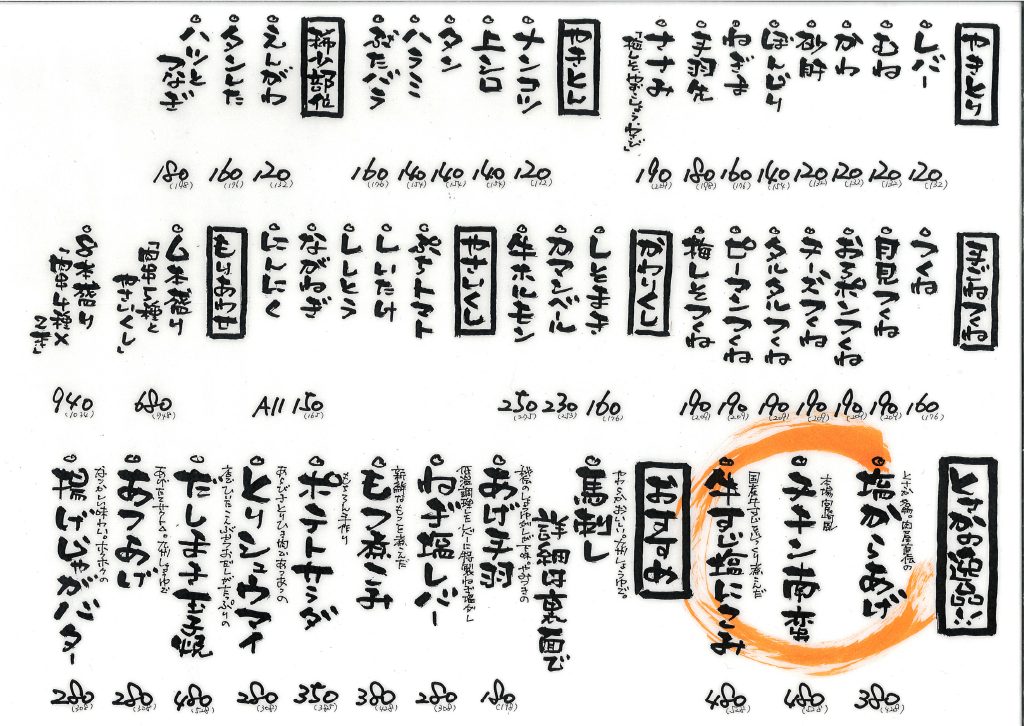 やきとり
レバー 120 (132)
むね 120 (132)
かわ 120 (132)
砂肝 120 (132)
ぼんじり 140 (154)
ねぎま 160 (176)
手羽先 180 (198)
ささみ 190 (209)
「梅しそ・ゆずこしょう・わさび」
やきとん
ナンコツ 120 (132)
上シロ 140 (154)
タン 140 (154)
ハラミ 140 (154)
ぶたバラ 160 (176)
稀少部位
えんがわ 120 (132)
タンした 160 (176)
ハツと
つなぎ 180 (198)
手ごねつくね
つくね 160 (176)
月見つくね 190 (209)
おろポンつくね 190 (209)
チーズつくね 190 (209)
タルタルつくね 190 (209)
ピーマンつくね 190 (209)
梅しそつくね 190 (209)
かわりくし
しそまき 160 (176)
カマンベール 230 (253)
牛ホルモン 250 (275)
やさいくし
ぷちトマト
しいたけ
ししとう
ながねぎ
にんにく
All 150 (165)
もりあわせ
6本盛り 680 (748)
「串5種と
やさいくし」
8本盛り 940 (1034)
「串4種×
2本」
とさか名品!!
とさか名物 肉屋直伝の
塩からあげ 380 (428)
本場宮崎発
チキン南蛮 480 (528)
国産牛すじをじっくり煮こんだ
牛すじ塩にこみ 480 (528)
おすすめ
やわらかおいしい。九州しょうゆで。
馬刺し
詳細は裏面で
あげ手羽 180 (198)
低温調理したレバーに特製ねぎ塩だし
ねぎ塩レバー 280 (308)
新鮮なもつを煮こんだ
もつ煮こみ 380 (428)
もちろん手作り
ポテトサラダ 350 (385)
あらびきとりひき肉があつあつの
とりシュウマイ 280 (308)
だしまき玉子焼 480 (528)
あつあげ 280 (308)
なつかしい味わい。ホクホクの
揚げじゃがバター 280 (308)